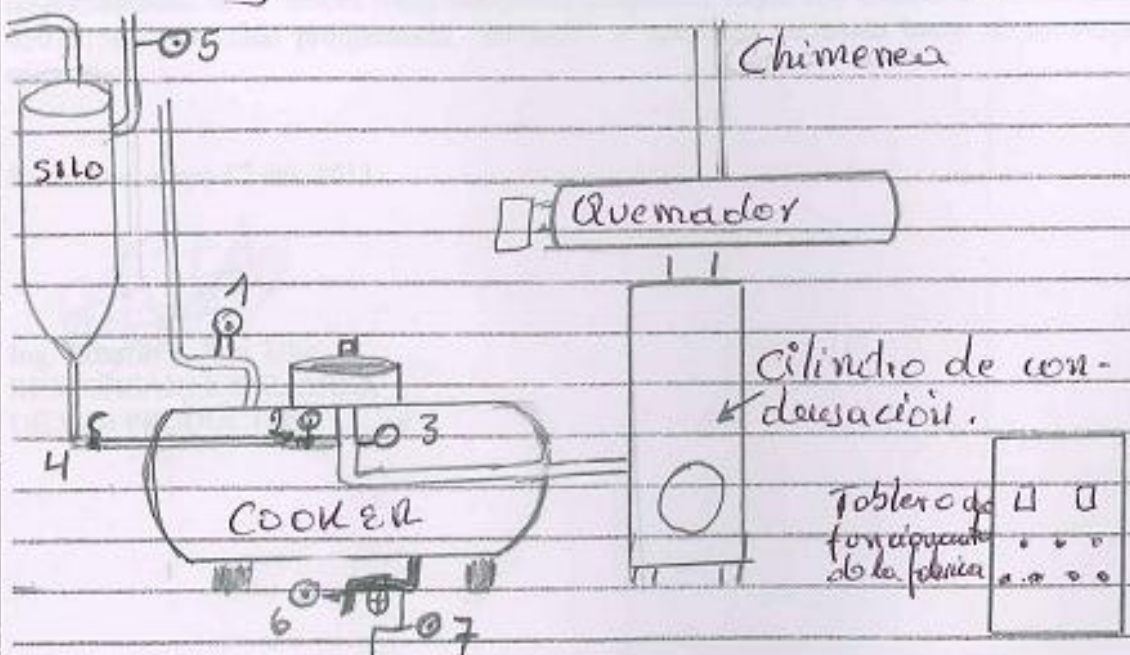 5
Chimenea
SILO
Quemador
1
Cilindro de con-
densación.
2
3
4
COOKER
Tablero de
funcionamiento
de la fabrica
6
7